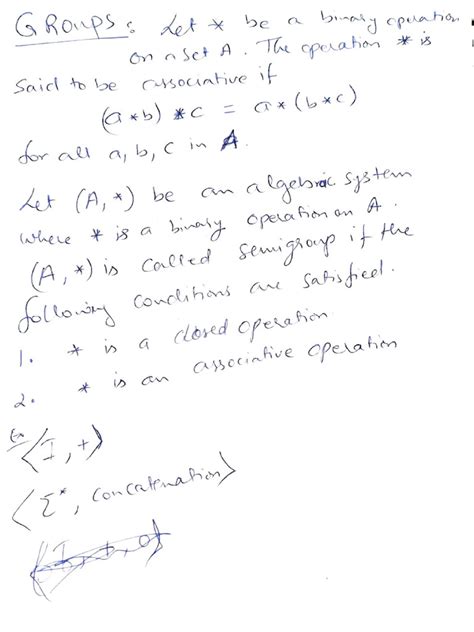 GROUPS : Let * be a binary operation
on a set A. The operation * is
said to be associative if
(a*b) *c = a*(b*c)
for all a, b, c in A.
Let (A, *) be an algebraic system
where * is a binary operation on A.
(A, *) is called semigroup if the
following conditions are satisfied.
1. * is a closed operation
2. * is an associative operation
Ex
⟨I, +⟩
⟨Σ*, concatenation⟩